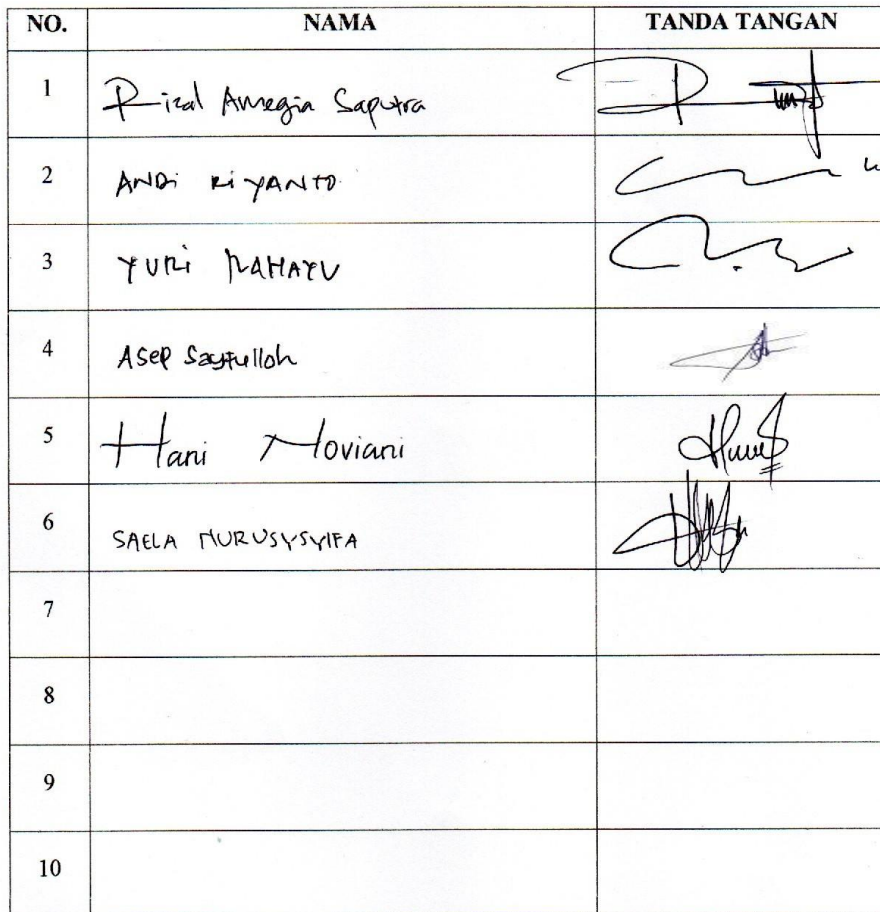 NO. NAMA TANDA TANGAN
1 Rizal Amegia Saputra
2 ANDi RiYANTO
3 YURi RAHAYU
4 Asep Sayfulloh
5 Hani Noviani
6 SAELA NURUSYSYIFA
7
8
9
10